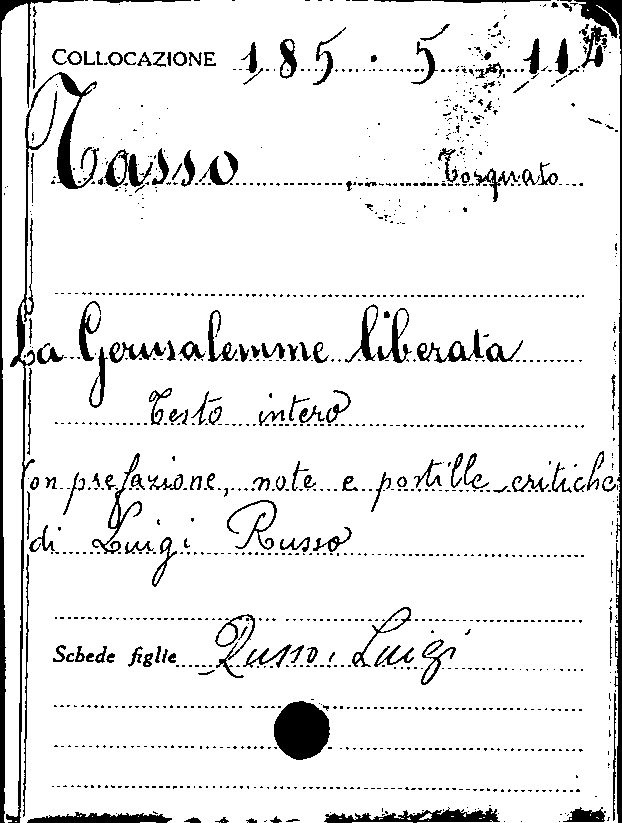 COLLOCAZIONE 185 . 5 . 114
Tasso, Torquato
La Gerusalemme liberata
Testo intero
Con prefazione, note e postille critiche
di Luigi Russo
Schede figlie Russo, Luigi